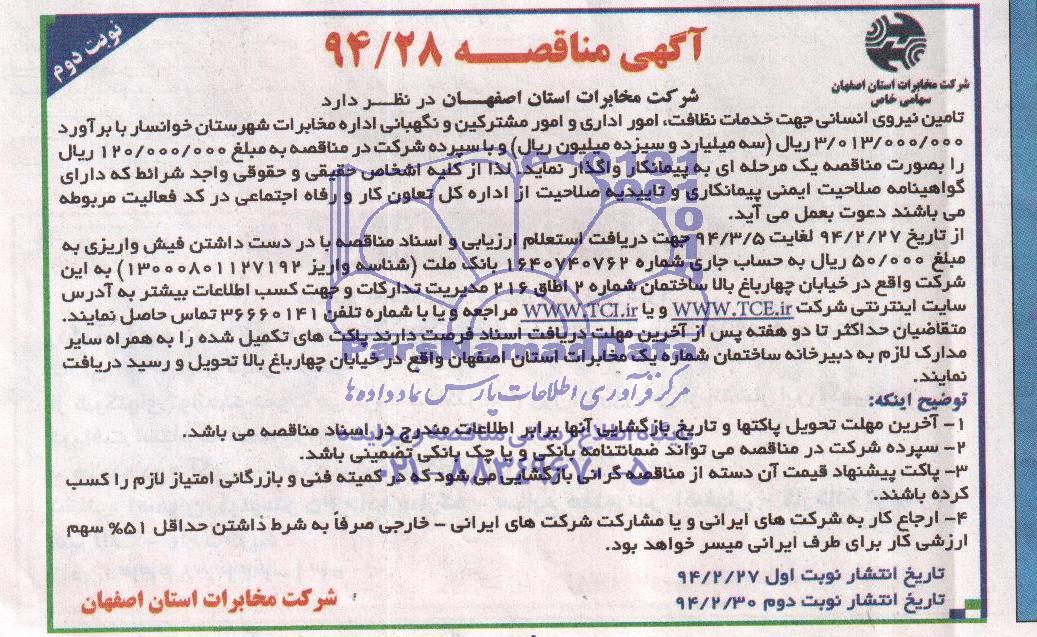 نوبت دوم
آگهی مناقصه ۹۴/۲۸
شرکت مخابرات استان اصفهان
سهامی خاص
شرکت مخابرات استان اصفهان در نظر دارد
تامین نیروی انسانی جهت خدمات نظافت، امور اداری و امور مشترکین و نگهبانی اداره مخابرات شهرستان خوانسار با برآورد
۳/۰۱۳/۰۰۰/۰۰۰ ریال (سه میلیارد و سیزده میلیون ریال) و با سپرده شرکت در مناقصه به مبلغ ۱۲۰/۰۰۰/۰۰۰ ریال
را بصورت مناقصه یک مرحله ای به پیمانکار واگذار نماید. لذا از کلیه اشخاص حقیقی و حقوقی واجد شرائط که دارای
گواهینامه صلاحیت ایمنی پیمانکاری و تاییدیه صلاحیت از اداره کل تعاون کار و رفاه اجتماعی در کد فعالیت مربوطه
می باشند دعوت بعمل می آید.
از تاریخ ۹۴/۲/۲۷ لغایت ۹۴/۳/۵ جهت دریافت استعلام ارزیابی و اسناد مناقصه با در دست داشتن فیش واریزی به
مبلغ ۵۰/۰۰۰ ریال به حساب جاری شماره ۱۶۴۰۷۴۰۷۶۲ بانک ملت (شناسه واریز ۱۳۰۰۰۸۰۱۱۲۷۱۹۲) به این
شرکت واقع در خیابان چهارباغ بالا ساختمان شماره ۲ اطاق ۲۱۶ مدیریت تدارکات و جهت کسب اطلاعات بیشتر به آدرس
سایت اینترنتی شرکت WWW.TCE.ir و یا WWW.TCI.ir مراجعه و یا با شماره تلفن ۳۶۶۶۰۱۴۱ تماس حاصل نمایند.
متقاضیان حداکثر تا دو هفته پس از آخرین مهلت دریافت اسناد فرصت دارند پاکت های تکمیل شده را به همراه سایر
مدارک لازم به دبیرخانه ساختمان شماره یک مخابرات استان اصفهان واقع در خیابان چهارباغ بالا تحویل و رسید دریافت
نمایند.
توضیح اینکه:
۱- آخرین مهلت تحویل پاکتها و تاریخ بازگشایی آنها برابر اطلاعات مندرج در اسناد مناقصه می باشد.
۲- سپرده شرکت در مناقصه می تواند ضمانتنامه بانکی و یا چک بانکی تضمینی باشد.
۳- پاکت پیشنهاد قیمت آن دسته از مناقصه گرانی بازگشایی می شود که در کمیته فنی و بازرگانی امتیاز لازم را کسب
کرده باشند.
۴- ارجاع کار به شرکت های ایرانی و یا مشارکت شرکت های ایرانی - خارجی صرفاً به شرط داشتن حداقل ۵۱% سهم
ارزشی کار برای طرف ایرانی میسر خواهد بود.
تاریخ انتشار نوبت اول ۹۴/۲/۲۷
تاریخ انتشار نوبت دوم ۹۴/۲/۳۰
شرکت مخابرات استان اصفهان
ParsNamadData
مرکز فرآوری اطلاعات پارس نماد داده ها
پایگاه اطلاع رسانی مناقصه و مزایده
۰۲۱-۸۸۳۴۹۶۷۰-۵